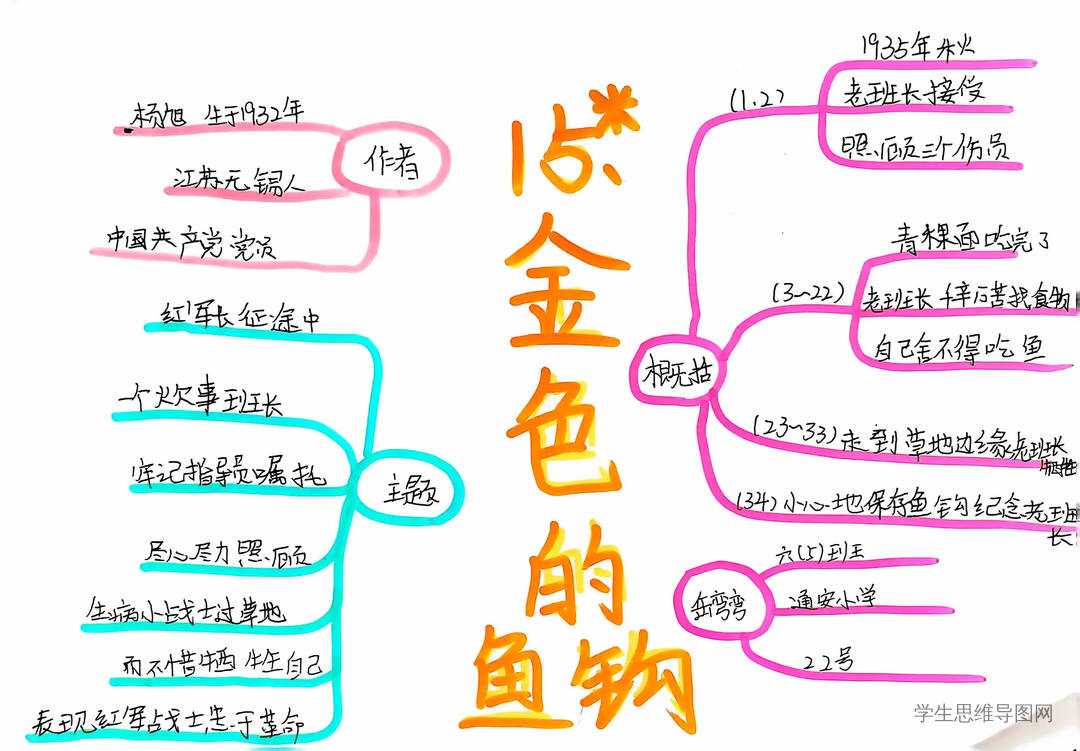 15、*
金色的鱼钩
作者
杨旭 生于1932年
江苏无锡人
中国共产党党员
主题
红军长征途中
一个炊事班长
牢记指导员嘱托
尽心尽力照顾
生病小战士过草地
而不惜牺牲自己
表现红军战士忠于革命
概括
(1.2)
1935年秋
老班长接受
照顾三个伤员
(3~22)
青稞面吃完了
老班长千辛万苦找食物
自己舍不得吃鱼
(23~33)走到草地边缘老班长
牺牲
(34)小心地保存鱼钩纪念老班
长
岳弯弯
六(5)班
通安小学
22号
学生思维导图网